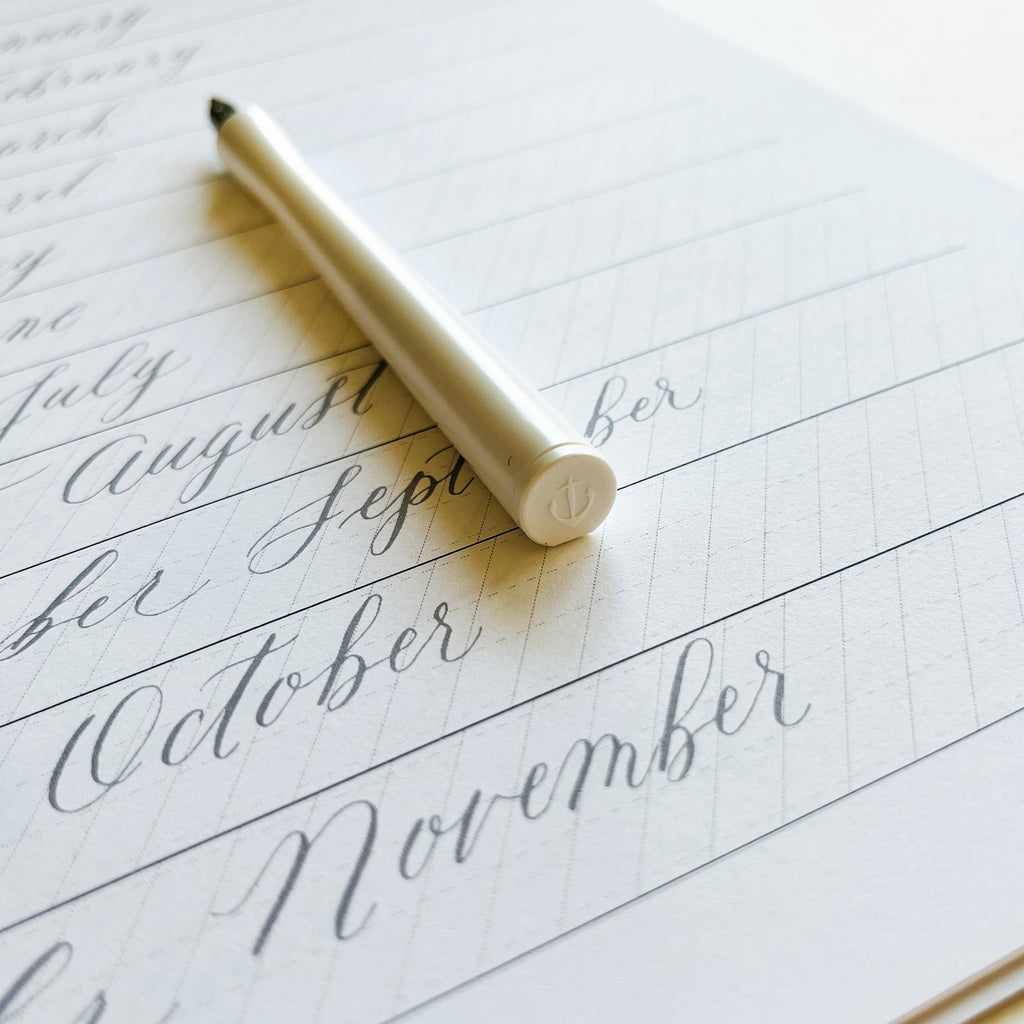 nuary
ebruary
arch
ril
y
ne
July
August
ber Sept ber
October
November